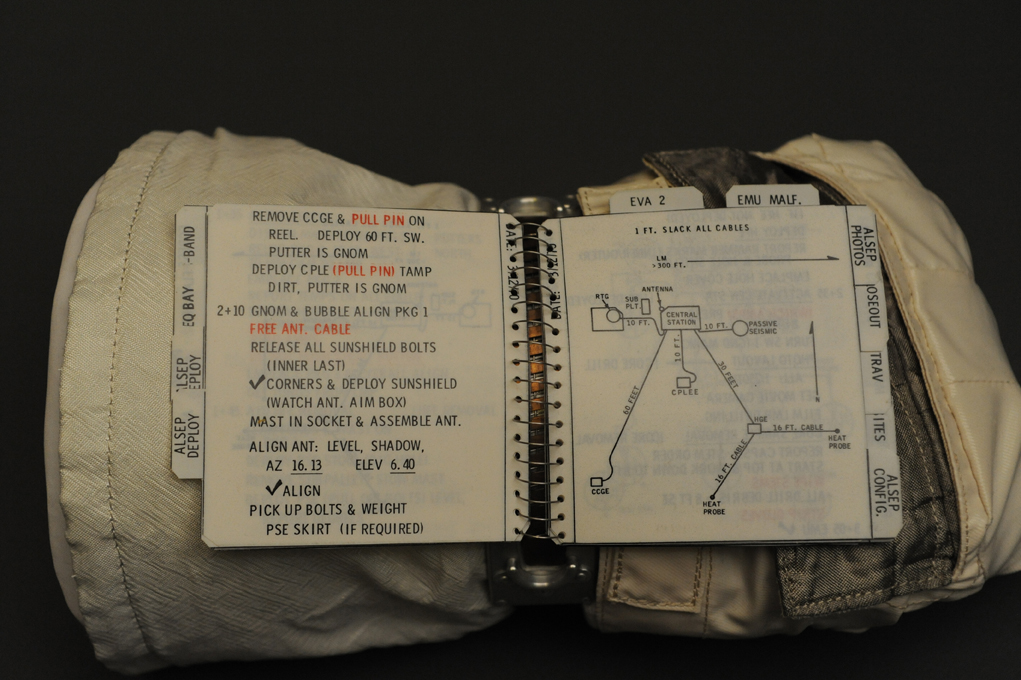 REMOVE CCGE & PULL PIN ON
REEL. DEPLOY 60 FT. SW.
PUTTER IS GNOM
DEPLOY CPLE (PULL PIN) TAMP
DIRT, PUTTER IS GNOM
2+10 GNOM & BUBBLE ALIGN PKG 1
FREE ANT. CABLE
RELEASE ALL SUNSHIELD BOLTS
(INNER LAST)
✓CORNERS & DEPLOY SUNSHIELD
(WATCH ANT. AIM BOX)
MAST IN SOCKET & ASSEMBLE ANT.
ALIGN ANT: LEVEL, SHADOW,
AZ 16.13 ELEV 6.40
✓ALIGN
PICK UP BOLTS & WEIGHT
PSE SKIRT (IF REQUIRED)
-BAND
EQ BAY
ALSEP
DEPLOY
EVA 2
EMU MALF.
1 FT. SLACK ALL CABLES
LM
>300 FT.
ANTENNA
RTG
SUB
PLT.
10 FT.
CENTRAL
STATION
10 FT.
PASSIVE
SEISMIC
10 FT.
CPLEE
30 FEET
60 FEET
HGE
16 FT. CABLE
HEAT
PROBE
16 FT. CABLE
CCGE
HEAT
PROBE
N
ALSEP
PHOTOS
OSEOUT
TRAV
ITES
ALSEP
CONFIG.